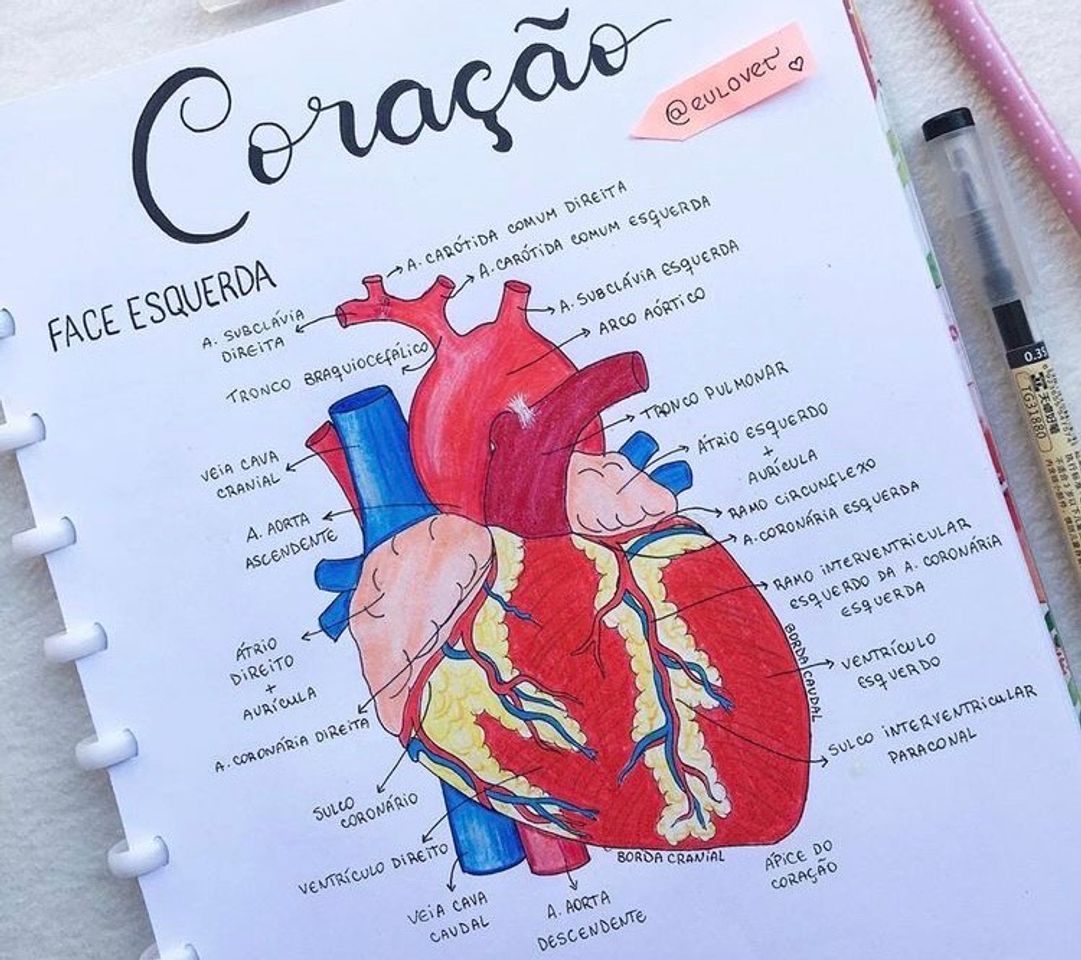 Coração
@eulovet
FACE ESQUERDA
A. CARÓTIDA COMUM DIREITA
A. CARÓTIDA COMUM ESQUERDA
A. SUBCLÁVIA ESQUERDA
ARCO AÓRTICO
A. SUBCLÁVIA
DIREITA
TRONCO BRAQUIOCEFÁLICO
TRONCO PULMONAR
ÁTRIO ESQUERDO
+
AURÍCULA
VEIA CAVA
CRANIAL
RAMO CIRCUNFLEXO
A. CORONÁRIA ESQUERDA
A. AORTA
ASCENDENTE
RAMO INTERVENTRICULAR
ESQUERDO DA A. CORONÁRIA
ESQUERDA
BORDA CAUDAL
ÁTRIO
DIREITO
+
AURÍCULA
VENTRÍCULO
ESQUERDO
A. CORONÁRIA DIREITA
SULCO INTERVENTRICULAR
PARACONAL
SULCO
CORONÁRIO
VENTRÍCULO DIREITO
BORDA CRANIAL
ÁPICE DO
CORAÇÃO
VEIA CAVA
CAUDAL
A. AORTA
DESCENDENTE
0.35
TG31880